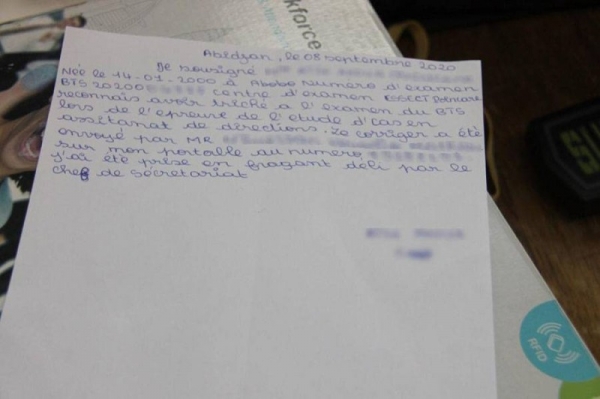 kforce
Abidjan, le 08 septembre 2020
Je sousigné
Née le 14-01-2000 à Abobo Numero d'examen
BTS 20200 centre d'examen
reconnais avoir triché a l'examen du BTS
lors de l'epreuve de l'etude d'cas en
assitanat de directions. Le corriger a été
envoyé par MR
sur mon portable au numero
j'ai été prise en flagant deli par le
chef de secretariat
RFID